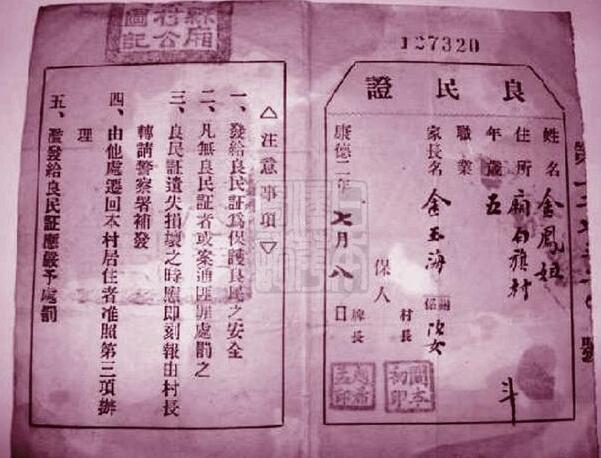 127320
良民證
姓名 金鳳
住所 白旗村
年歲 五
職業
家長名 金玉海 關係 次女
保人 村長 牌長
康德二年七月八日
△注意事項▽
一、發給良民証爲保護良民之安全
二、凡無良民証者或案通匪罪處罰之
三、良民証遺失損壞之時應即刻報由村長
轉請警察署補發
四、由他處遷回本村居住者准照第三項辦
理
五、濫發給良民証應嚴予處罰
縣廂村公圖記